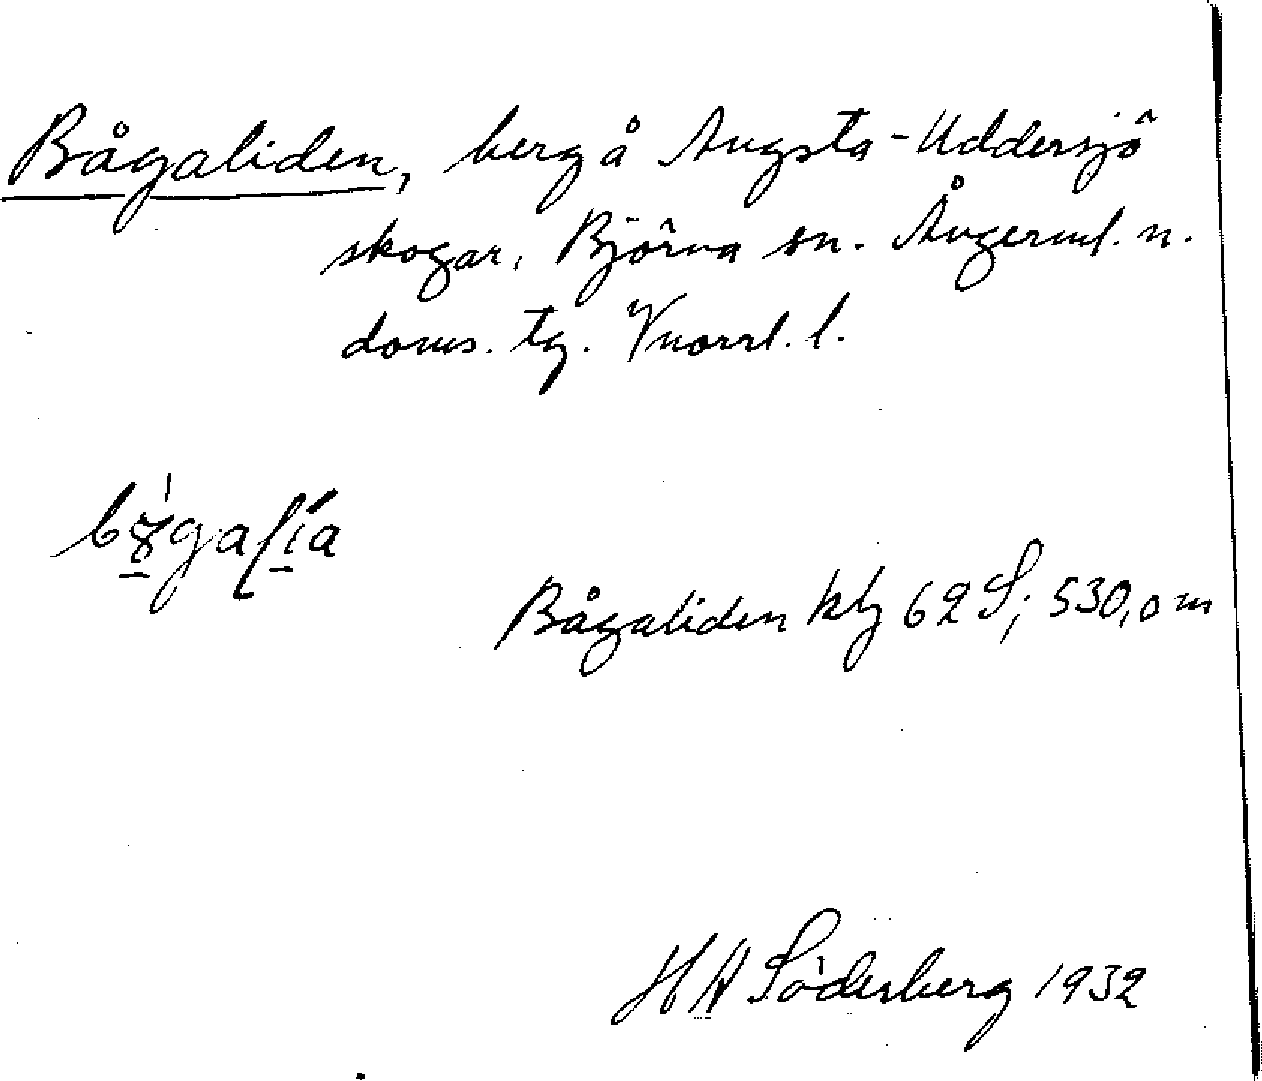 Bågaliden, berg å Angsta-Uddersjö
skogar, Björna sn. Ångerml. n.
doms. tg. Vnorrl. l.
Bågaliden kbl 62 S; 530,0 m
H A Söderberg 1932